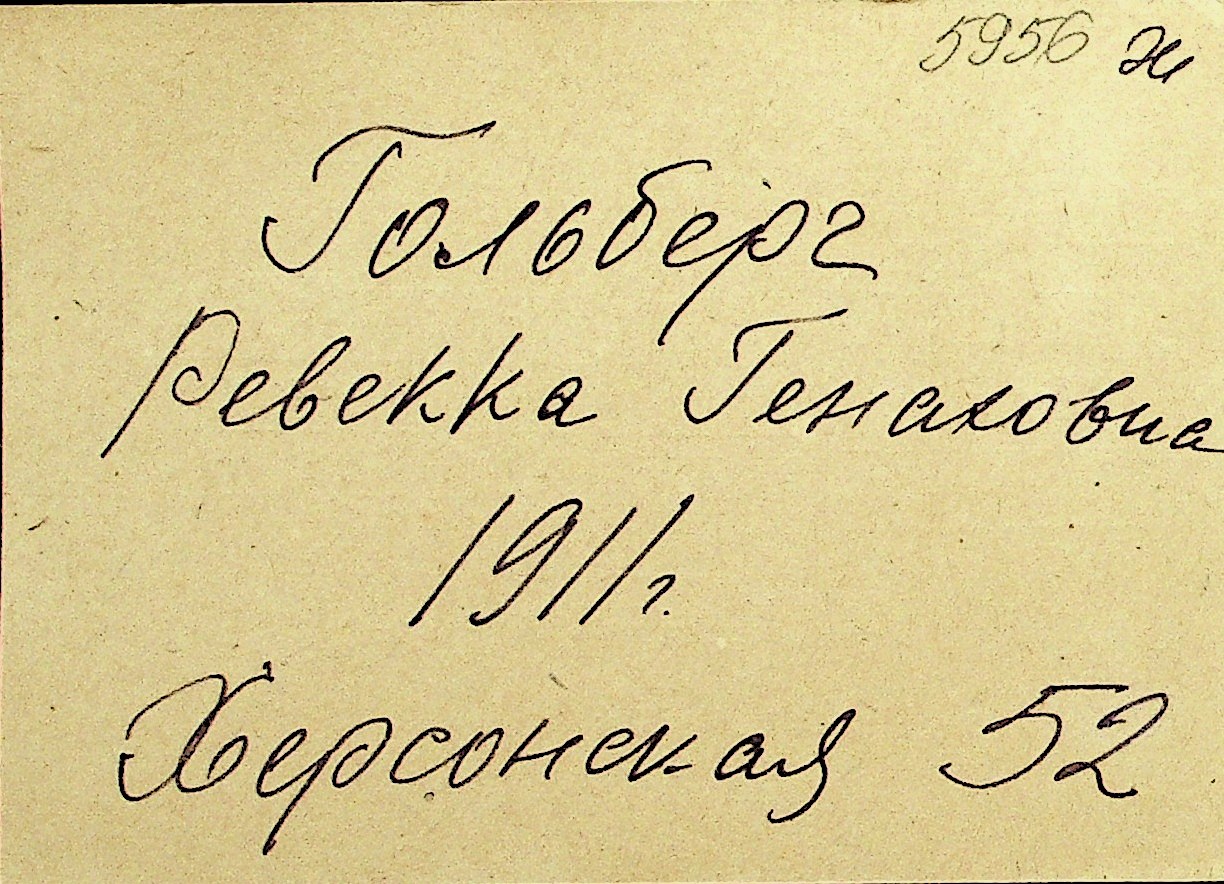 5956 ж
Гольберг
Ревекка Генаховна
1911г.
Херсонская 52